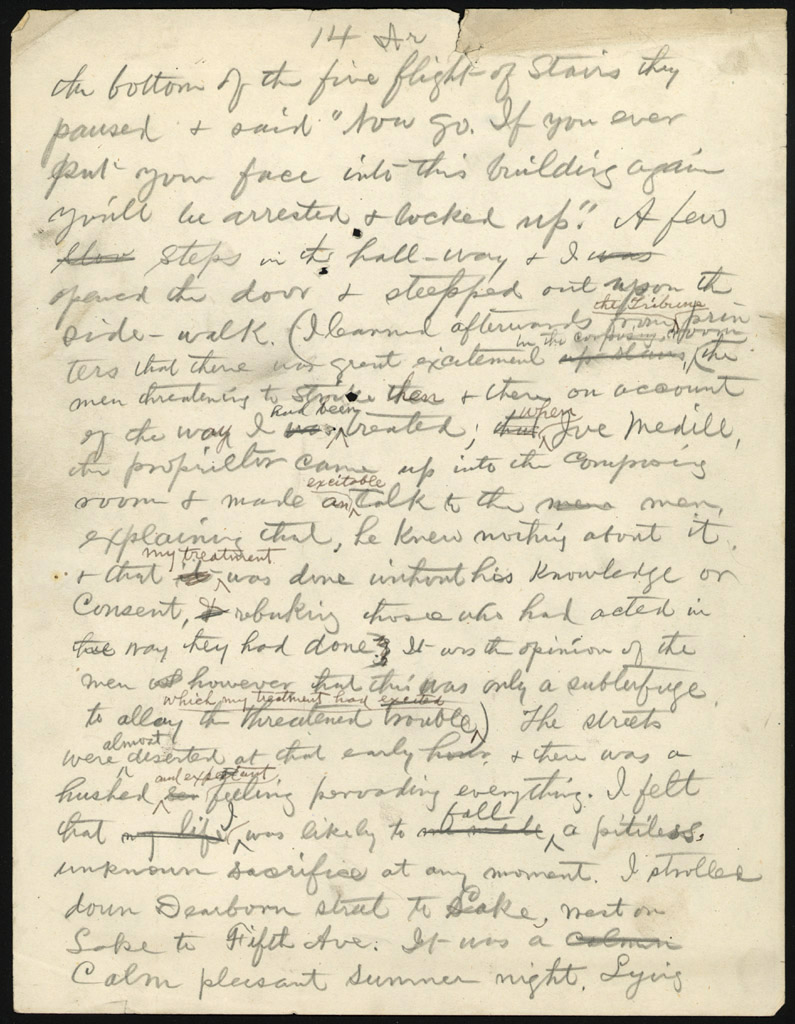 14 Ar
the bottom of the five flight of stairs they
paused & said "Now go. If you ever
put your face into this building again
you'll be arrested & locked up". A few
steps in the hall-way & I was
opened the door & steepped out upon the
the Tribune
side-walk. (I learned afterwards from prin-
in the composing room
ters that there was great excitement up stairs, (the
men threatening to strike then & there on account
had been when
of the way I was treated; that Joe Medill,
the proprietor came up into the composing
excitable
room & made an talk to the mens men,
explaining that, he knew nothing about it
my treatment
& that it was done without his knowledge or
Consent, & rebuking those who had acted in
the way they had done. It was the opinion of the
men however that this was only a subterfuge
which my treatment had excited
to allay the threatened trouble) The streets
almost
were deserted at that early hour, & there was a
and expectant
hushed feeling pervading everything. I felt
I fall
that my life was likely to be made a pitiless
unknown sacrifice at any moment. I strolled
down Dearborn street to Lake, west on
Lake to Fifth Ave. It was a calmn
Calm pleasant summer night. Lying